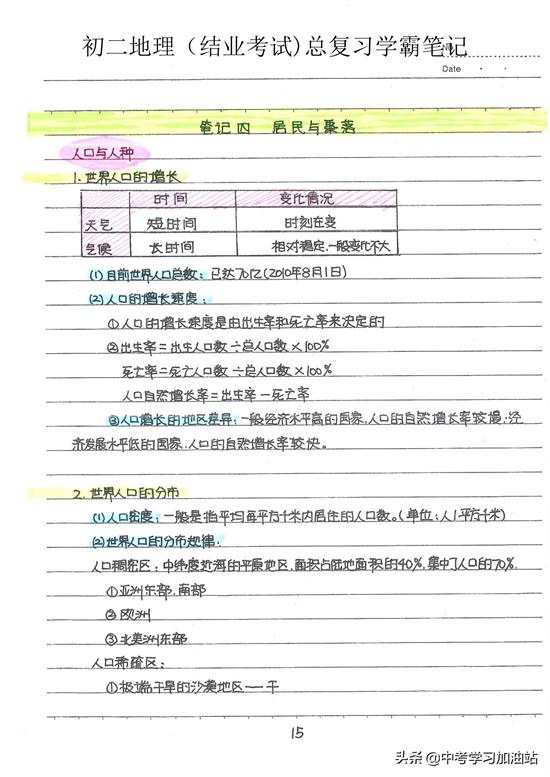 初二地理（结业考试)总复习学霸笔记
Date
笔记四 居民与聚落
人口与人种
1. 世界人口的增长
时间 变化情况
天气 短时间 时刻在变
气候 长时间 相对稳定,一般变化不大
(1)目前世界人口总数：已达70亿(2010年8月1日)
(2)人口的增长速度：
①人口的增长速度是由出生率和死亡率来决定的
②出生率=出生人口数÷总人口数×100%
死亡率=死亡人口数÷总人口数×100%
人口自然增长率=出生率-死亡率
③人口增长的地区差异：一般经济水平高的国家,人口的自然增长率较慢;经
济发展水平低的国家,人口的自然增长率较快。
2. 世界人口的分布
(1)人口密度：一般是指平均每平方千米内居住的人口数。(单位：人/平方千米)
(2)世界人口的分布规律.
人口稠密区：中纬度近海的平原地区,面积占陆地面积的40%,集中了人口的70%.
①亚洲东部.南部
②欧洲
③北美洲东部
人口稀疏区：
①极端干旱的沙漠地区——干
15
头条@中考学习加油站